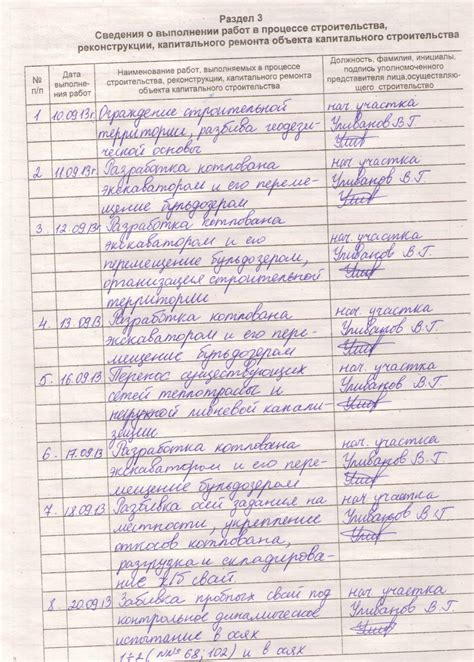 Раздел 3
Сведения о выполнении работ в процессе строительства,
реконструкции, капитального ремонта объекта капитального строительства
№ п/п
Дата выполне-
ния работ
Наименование работ, выполняемых в процессе
строительства, реконструкции, капитального ремонта
объекта капитального строительства
Должность, фамилия, инициалы,
подпись уполномоченного
представителя лица,осуществляющо-
щего строительство
1 10.09.13г. Ограждение строительной нач. участка
территории, разбивка геодези- Уливанов В.Г.
ческой основы
2 11.09.13г. Разработка котлована нач. участка
экскаватором и его переме- Уливанов В.Г.
щение бульдозером
3. 12.09.13г Разработка котлована нач. участка
экскаватором и его Уливанов В.Г.
перемещение бульдозером,
организация строительной
территории
4. 13.09.13 Разработка котлована нач. участка
экскаватором и его пере- Уливанов В.Г.
мещение бульдозером
5. 16.09.13 Перенос существующих нач. участка
сетей теплотрассы и Уливанов В.Г.
наружной ливневой канали-
зации
6. 17.09.13 Разработка котлована нач. участка
экскаватором и его пере- Уливанов В.Г.
мещение бульдозером
7. 18.09.13 Разбивка осей задания на нач. участка
местности, укрепление Уливанов В.Г.
откосов котлована,
разгрузка и складирова-
ние ж/б свай
8. 20.09.13 Забивка пробных свай под нач. участка
контрольное динамическое Уливанов В.Г.
испытание в осях
172 (№№ 68; 102) и в осях